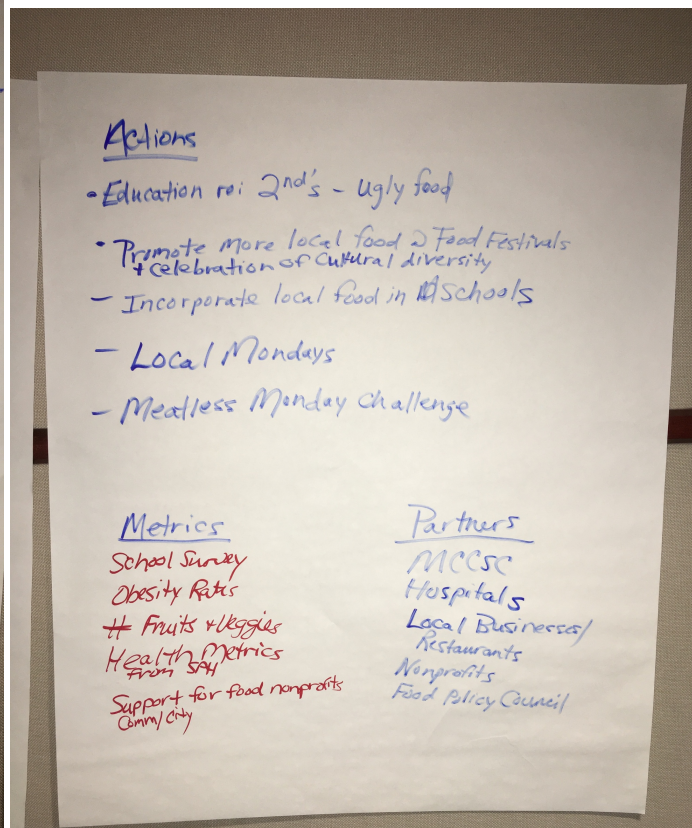 Actions
• Education re: 2nd's - ugly food
• Promote more local food @ Food Festivals
+ celebration of cultural diversity
- Incorporate local food in Schools
- Local Mondays
- Meatless Monday Challenge
Metrics
School Survey
Obesity Rates
# Fruits + Veggies
Health Metrics
from SPH
Support for food nonprofits
Comm/City
Partners
MCCSC
Hospitals
Local Businesses/
Restaurants
Nonprofits
Food Policy Council